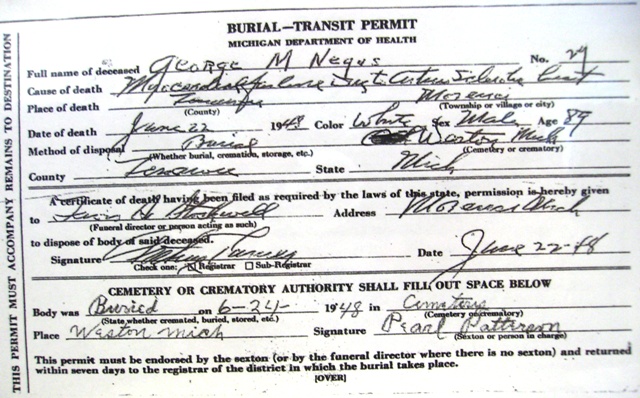 BURIAL—TRANSIT PERMIT
MICHIGAN DEPARTMENT OF HEALTH
Full name of deceased George M Negus No. 29
Cause of death Myocardial failure Due to Arterio Sclerotic
Place of death Lenawee Morenci
(County) (Township or village or city)
Date of death June 22 1948 Color White Sex Male Age 89
Method of disposal Burial Weston Mich
(Whether burial, cremation, storage, etc.) (Cemetery or crematory)
County Lenawee State Mich
A certificate of death having been filed as required by the laws of this state, permission is hereby given
to Address Morenci Mich
(Funeral director or person acting as such)
to dispose of body of said deceased.
Signature Date June 22-48
Check one: Registrar Sub-Registrar
CEMETERY OR CREMATORY AUTHORITY SHALL FILL OUT SPACE BELOW
Body was Buried on 6-24- 1948 in Cemetery
(State whether cremated, buried, stored, etc.) (Cemetery or crematory)
Place Weston Mich Signature Pearl Patterson
(Sexton or person in charge)
This permit must be endorsed by the sexton (or by the funeral director where there is no sexton) and returned
within seven days to the registrar of the district in which the burial takes place.
[OVER]
THIS PERMIT MUST ACCOMPANY REMAINS TO DESTINATION